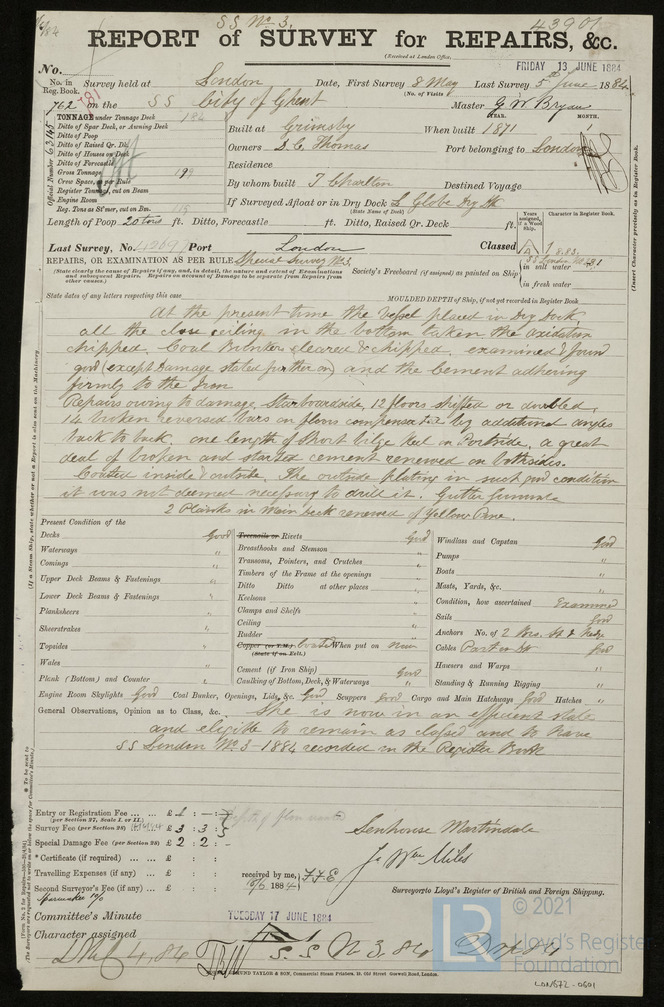 SS No 3.
43901
REPORT of SURVEY for REPAIRS, &c.
(Received at London Office,
FRIDAY 13 JUNE 1884
No.
No. in Reg. Book.
Survey held at London Date, First Survey 8 May Last Survey 5th June 1884
(No. of Visits)
762 on the SS City of Ghent Master G W Bryan
TONNAGE under Tonnage Deck
Ditto of Spar Deck, or Awning Deck
Ditto of Poop
Ditto of Raised Qr. Dk.
Ditto of Houses on Deck
Ditto of Forecastle
Gross Tonnage
Crew Space, as per Rule
Register Tonnage, cut on Beam
Engine Room
Reg. Tons as St'mer, cut on Bm.
Official Number 63145
Built at Grimsby When built YEAR. 1871 MONTH.
Owners D. C. Thomas Port belonging to London
Residence
By whom built T Charlton Destined Voyage
If Surveyed Afloat or in Dry Dock L Globe Dry Dk
(State Name of Dock)
Length of Poop ft. Ditto, Forecastle ft. Ditto, Raised Qr. Deck ft.
Years assigned, if a Wood Ship.
Character in Register Book.
(Insert Character precisely as in Register Book.
Last Survey, No. Port London Classed A1 8.83.
SS London No.
REPAIRS, OR EXAMINATION AS PER RULE Special Survey No 3.
(State clearly the cause of Repairs if any, and, in detail, the nature and extent of Examinations and subsequent Repairs. Repairs on account of Damage to be separate from Repairs from other causes.)
Society's Freeboard (if assigned) as painted on Ship
in salt water
in fresh water
State dates of any letters respecting this case
MOULDED DEPTH of Ship, if not yet recorded in Register Book
At the present time the Vessel placed in Dry Dock
all the close ceiling in the bottom taken the oxidation
chipped, Coal Bunkers cleared & chipped, examined & found
good (except Damage stated further on) and the Cement adhering
firmly to the Iron
Repairs owing to damage, Starboardside, 12 floors shifted or doubled,
14 broken reversed bars on floors compensated by additional angles
back to back, one length of Short bilge keel on Portside, a great
deal of broken and started cement renewed on bothsides.
Coated inside & outside. The outside plating in such good condition
it was not deemed necessary to drill it.
2 Planks in Main deck renewed of Yellow Pine.
Present Condition of the
Decks Good
Waterways "
Comings "
Upper Deck Beams & Fastenings "
Lower Deck Beams & Fastenings "
Planksheers
Sheerstrakes "
Topsides "
Wales "
Plank (Bottom) and Counter "
Treenails or Rivets Good
Breasthooks and Stemson "
Transoms, Pointers, and Crutches "
Timbers of the Frame at the openings "
Ditto Ditto at other places "
Keelsons "
Clamps and Shelfs "
Ceiling "
Rudder "
Copper (or Y.M.) Coated When put on now
(State if on Felt.)
Cement (if Iron Ship) Good
Caulking of Bottom, Deck, & Waterways "
Windlass and Capstan Good
Pumps "
Boats "
Masts, Yards, &c. "
Condition, how ascertained Examined
Sails Good
Anchors No. of
Cables Good
Hawsers and Warps "
Standing & Running Rigging "
Engine Room Skylights Good Coal Bunker, Openings, Lids, &c. Good Scuppers Good Cargo and Main Hatchways Good Hatches "
General Observations, Opinion as to Class, &c. She is now in an efficient state
and eligible to remain as classed and to have
SS London No 3-1884 recorded in the Register Book
Entry or Registration Fee £ 1 : - : -
(per Section 27, Scale I. or II.)
Survey Fee (per Section 28) £ 3 : 3 :
Special Damage Fee (per Section 28) £ 2 : 2 : -
* Certificate (if required) £ : :
Travelling Expenses (if any) £ : :
Second Surveyor's Fee (if any) £ : :
received by me,
1884
Senhouse Martindale
Jo Wm Miles
Surveyor to Lloyd's Register of British and Foreign Shipping.
Committee's Minute TUESDAY 17 JUNE 1884
Character assigned
S. S No 3. 84
© 2021
Lloyd's Register
Foundation
LON672-0601